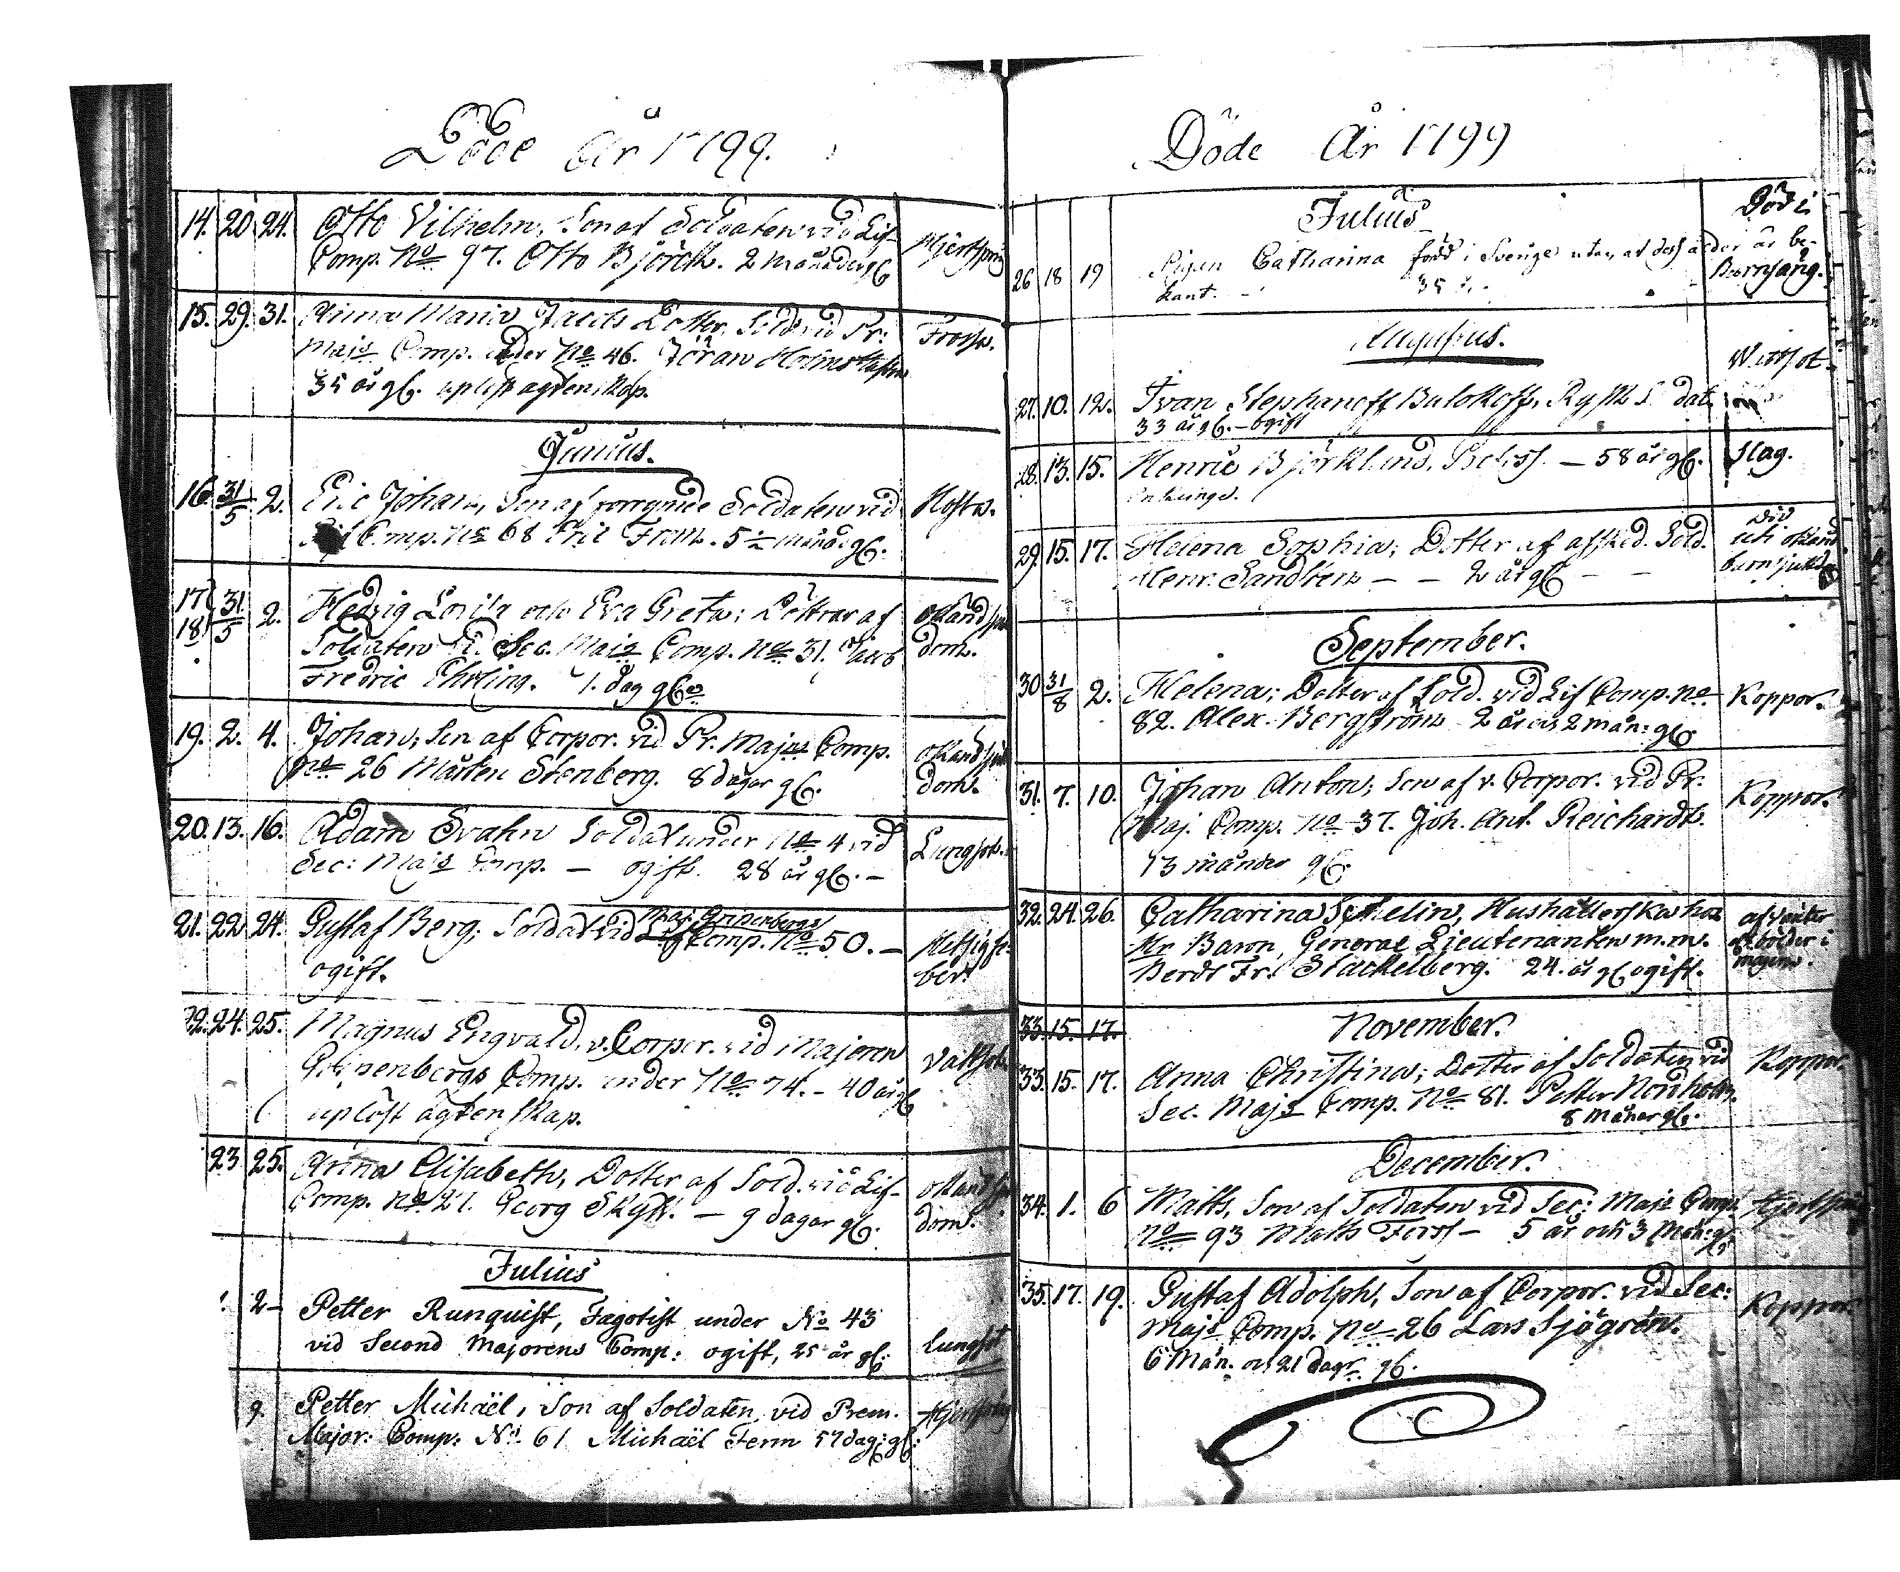 Döde År 1799.
14. 20 24. Otto Vilhelm, Son af Soldaten vid Lif-
Comp. No 97. Otto Björck. 2 månader gl.
Hjertspring
15. 29. 31. Anna Maria Jacobs Dotter, Sold. vid Pr:
Majs Comp. under No 46. Jöran Holms
35 år gl. uplöst ägtenskap.
Frossa.
Junius.
16. 31/5 2. Eric Johan, Son af förrymde Soldaten vid
Lif Comp. No 68 Eric From. 5 1/2 månad. gl.
Hosta.
17 18 31/5 2. Hedvig Lovisa och Eva Greta; Döttrar af
Soldaten vid Sec. Majs Comp. No 31. Jacob
Fredric Ehrling. 1. dag gl.
okänd sjuk
dom.
19. 2. 4. Johan, Son af Corpor. vid Pr. Majors Comp.
No 26 Mårten Stenberg. 8 dagar gl.
okänd sjuk
dom.
20. 13. 16. Adam Svahn Soldat under No 4 vid
Sec: Majs Comp. — ogift. 28 år gl. –
Lungsot.
21. 22 24. Gustaf Berg, Soldat vid Maj. Gripenbergs
Comp. No 50. –
ogift.
Hetsig fe-
ber.
22. 24. 25. Magnus Engvald, v. Corpor. vid Majoren
Gripenbergs Comp. under No 74. – 40 år gl
uplöst ägtenskap.
Vattsot.
23 25. Anna Elisabeth, Dotter af Sold. vid Lif-
Comp. No 21. Georg Skytt. – 9 dagar gl.
okänd sju
dom.
Julius
2 – Petter Runquist, Fagotist under No 43
vid Second Majorens Comp: ogift, 25 år gl:
lungsot
9. Petter Michaël, Son af Soldaten vid Prem.
Major: Comp: No 61 Michaël Ferm 57 dag: gl:
Hjertspring
Döde År 1799
Julius
Död i
26 18 19 Pigan Catharina född i Sverige utan at dess ålder är be-
kant. – 35 år.
Barnsäng.
Augustus.
27. 10. 12. Ivan Stephanoff Bulokoff, Rysk Soldat.
33 år gl. – ogift
Wattsot.
28. 13. 15. Henric Björklund, — 58 år gl.
Enkling.
Slag.
29. 15. 17. Helena Sophia; Dotter af afsked. Sold.
Henr. Sandsten – – 2 år gl – –
Död
uti okänd
barnsjukdom
September.
30 31/8 2. Helena; Dotter af Sold. vid Lif Comp. No
82. Alex. Bergström 2 år och 2 mån: gl.
Koppor.
31. 7. 10. Johan Anton, Son af v. Corpor. vid Pr.
Maj. Comp. No 37. Joh. Ant. Reichardt.
13 månader gl.
Koppor.
32. 24. 26. Catharina Hushållerska hos
Hr Baron, General Lieutenanten m.m.
Berdt Fr. Stackelberg. 24. år gl. ogift.
bölder i
magen.
33. 15. 17.
November.
33. 15. 17. Anna Christina; Dotter af Soldaten vid
Sec. Majs Comp. No 81. Petter Nordholm.
8 månar gl.
Koppor.
December.
34. 1. 6 Matts, Son af Soldaten vid Sec: Majs Comp.
No 93 Matts Forss – 5 år och 3 mån: gl:
Hjertspring
35. 17. 19. Gustaf Adolph, Son af Corpor. vid Sec:
Majs Comp. No 26 Lars Sjögrén.
6 Mån. och 21 dagr. gl.
Koppor.